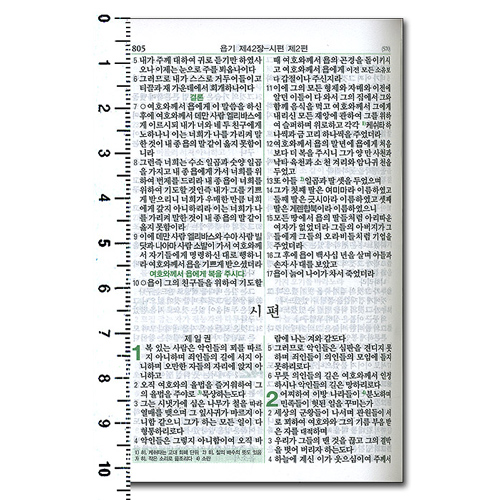 0
1
2
3
4
5
6
7
8
9
10
805
욥기 제42장-시편 제2편
5 내가 주께 대하여 귀로 듣기만 하였사
오나 이제는 눈으로 주를 뵈옵나이다
6 그러므로 내가 스스로 거두어들이고
티끌과 재 가운데에서 회개하나이다
결론
7 ○여호와께서 욥에게 이 말씀을 하신
후에 여호와께서 데만 사람 엘리바스에
게 이르시되 내가 너와 네 두 친구에게
노하나니 이는 너희가 나를 가리켜 말
한 것이 내 종 욥의 말 같이 옳지 못함이
니라
8 그런즉 너희는 수소 일곱과 숫양 일곱
을 가지고 내 종 욥에게 가서 너희를 위
하여 번제를 드리라 내 종 욥이 너희를
위하여 기도할 것인즉 내가 그를 기쁘
게 받으리니 너희가 우매한 만큼 너희
에게 갚지 아니하리라 이는 너희가 나
를 가리켜 말한 것이 내 종 욥의 말 같이
옳지 못함이라
9 이에 데만 사람 엘리바스와 수아 사람 빌
닷과 나아마 사람 소발이 가서 여호와께
서 자기들에게 명령하신 대로 행하니라
여호와께서 욥을 기쁘게 받으셨더라
여호와께서 욥에게 복을 주시다
10 ○욥이 그의 친구들을 위하여 기도할
때 여호와께서 욥의 곤경을 돌이키시
고 여호와께서 욥에게 이전 모든 소유보
다 갑절이나 주신지라
11 이에 그의 모든 형제와 자매와 이전에
알던 이들이 다 와서 그의 집에서 그와
함께 음식을 먹고 여호와께서 그에게
내리신 모든 재앙에 관하여 그를 위하
여 슬퍼하며 위로하고 각각 케쉬타 하
나씩과 금 고리 하나씩을 주었더라
12 여호와께서 욥의 말년에 욥에게 처음
보다 더 복을 주시니 그가 양 만 사천과
낙타 육천과 소 천 겨리와 암나귀 천을
두었고
13 또 아들 일곱과 딸 셋을 두었으며
14 그가 첫째 딸은 여미마라 이름하였고
둘째 딸은 긋시아라 이름하였고 셋째
딸은 게렌합북이라 이름하였으니
15 모든 땅에서 욥의 딸들처럼 아리따운
여자가 없었더라 그들의 아버지가 그
들에게 그들의 오라비들처럼 기업을
주었더라
16 그 후에 욥이 백사십 년을 살며 아들과
손자 사 대를 보았고
17 욥이 늙어 나이가 차서 죽었더라
시 편
제 일 권
1 복 있는 사람은 악인들의 꾀를 따르
지 아니하며 죄인들의 길에 서지 아
니하며 오만한 자들의 자리에 앉지 아
니하고
2 오직 여호와의 율법을 즐거워하여 그
의 율법을 주야로 묵상하는도다
3 그는 시냇가에 심은 나무가 철을 따라
열매를 맺으며 그 잎사귀가 마르지 아
니함 같으니 그가 하는 모든 일이 다
형통하리로다
4 악인들은 그렇지 아니함이여 오직 바
람에 나는 겨와 같도다
5 그러므로 악인들은 심판을 견디지 못
하며 죄인들이 의인들의 모임에 들지
못하리로다
6 무릇 의인들의 길은 여호와께서 인정
하시나 악인들의 길은 망하리로다
2 어찌하여 이방 나라들이 분노하며
민족들이 헛된 일을 꾸미는가
2 세상의 군왕들이 나서며 관원들이 서
로 꾀하여 여호와와 그의 기름 부음 받
은 자를 대적하며
3 우리가 그들의 맨 것을 끊고 그의 결박
을 벗어 버리자 하는도다
4 하늘에 계신 이가 웃으심이여 주께서